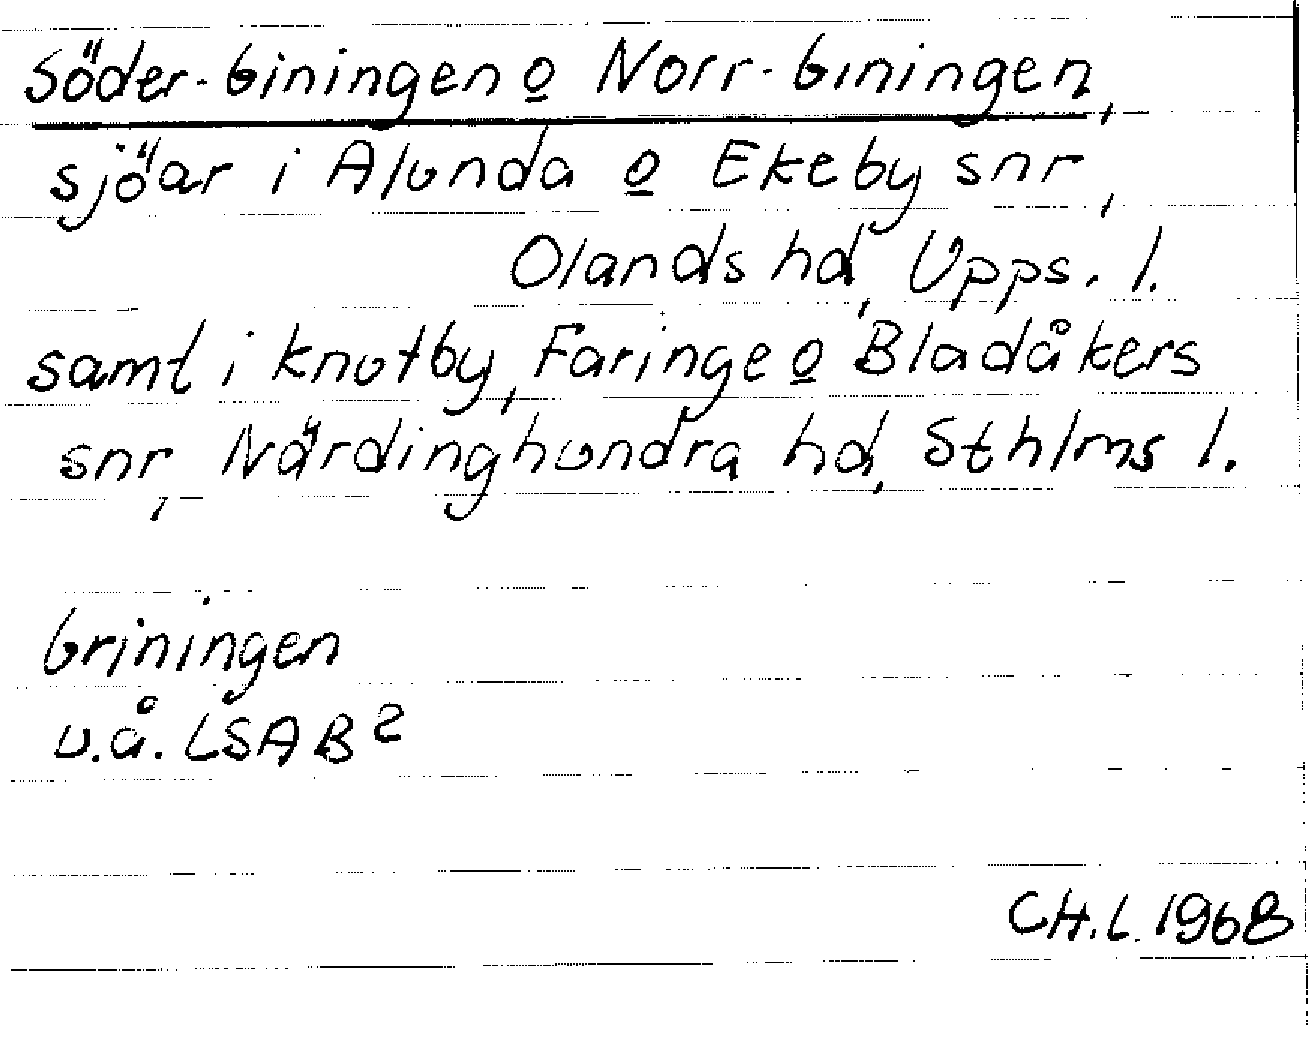 Söder-Giningen o Norr-Giningen,
sjöar i Alunda o Ekeby snr,
Olands hd, Upps. l.
samt i Knutby, Faringe o Bladåkers
snr, Närdinghundra hd, Sthlms l.
Griningen
u.å. LSA B2
CH.L. 1968